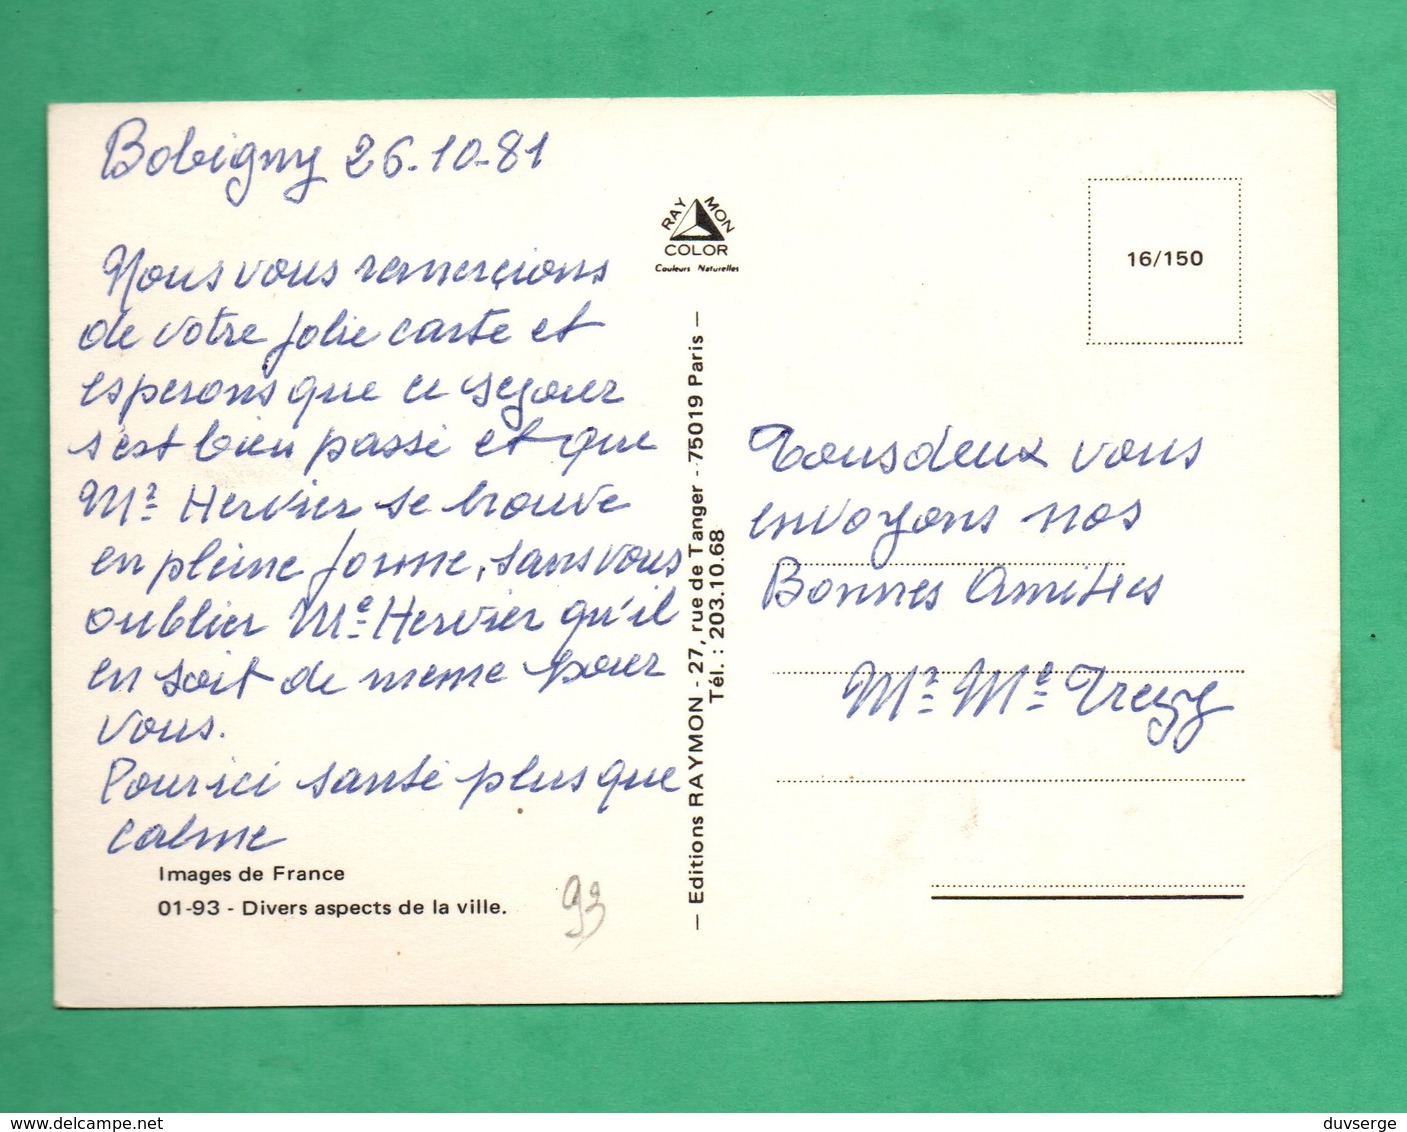 Bobigny 26-10-81
Nous vous remerçions
de votre jolie carte et
esperons que ce sejour
s'est bien passé et que
Mr Hervier se trouve
en pleine forme, sans vous
oublier Me Hervier qu'il
en soit de meme pour
vous.
Pour ici santé plus que
calme
Images de France
01-93 - Divers aspects de la ville.
93
RAYMON
COLOR
Couleurs Naturelles
— Editions RAYMON - 27, rue de Tanger - 75019 Paris —
Tél. : 203.10.68
16/150
Tous deux vous
envoyons nos
Bonnes Amitiés
Mr Me
duvserge